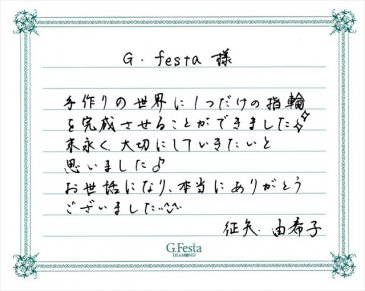 G・festa 様
手作りの世界に1つだけの指輪
を完成させることができました♪
末永く、大切にしていきたいと
思いました♪
お世話になり、本当にありがとう
ございました
征矢、由希子
G.Festa
DIAMOND